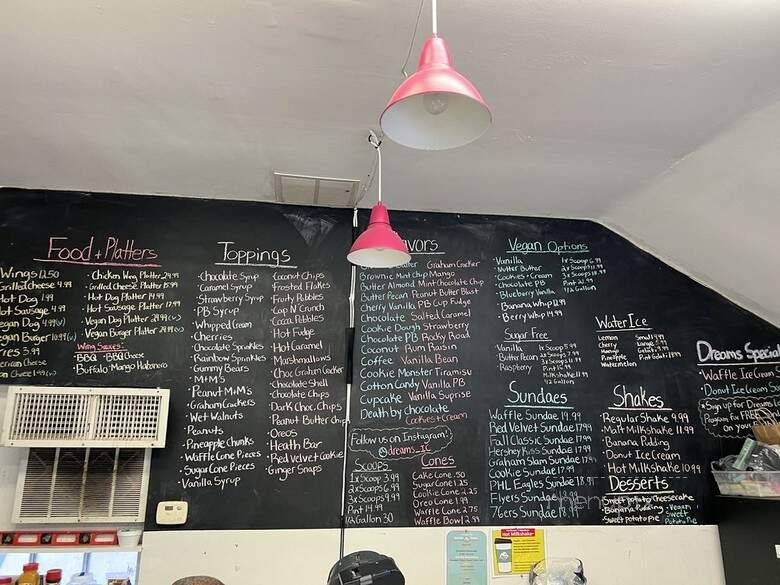 Food + Platters
Wings 12.50
Grilled Cheese 4.99
Hot Dog 1.99
Hot Sausage 4.99
Vegan Dog 4.99 (v)
Vegan Burger 10.99 (v)
Fries 3.99
• Chicken Wing Platter 24.99
• Grilled Cheese Platter 15.99
• Hot Dog Platter 14.99
• Hot Sausage Platter 17.99
• Vegan Dog Platter 29.99 (v)
• Vegan Burger Platter 28.99 (v)
Wing Sauces:
BBQ • BBQ Cheese
Buffalo • Mango Habanero
Toppings
• Chocolate Syrup
• Caramel Syrup
• Strawberry Syrup
• PB Syrup
• Whipped Cream
• Cherries
• Chocolate Sprinkles
• Rainbow Sprinkles
• Gummy Bears
• M+M's
• Peanut M+M's
• Graham Crackers
• Wet Walnuts
• Peanuts
• Pineapple Chunks
• Waffle Cone Pieces
• Sugar Cone Pieces
• Vanilla Syrup
• Coconut Chips
• Frosted Flakes
• Fruity Pebbles
• Cap N' Crunch
• Cocoa Pebbles
• Hot Fudge
• Hot Caramel
• Marshmallows
• Choc Graham Cracker
• Chocolate Shell
• Chocolate Chips
• Dark Choc. Chips
• Peanut Butter Chips
• Oreos
• Heath Bar
• Red Velvet Cookie
• Ginger Snaps
Graham Cracker
Brownie Mint Chip Mango
Butter Almond Mint Chocolate Chip
Butter Pecan Peanut Butter Blast
Cherry Vanilla PB Cup Fudge
Chocolate Salted Caramel
Cookie Dough Strawberry
Chocolate PB Rocky Road
Coconut Rum Raisin
Coffee Vanilla Bean
Cookie Monster Tiramisu
Cotton Candy Vanilla PB
Cupcake Vanilla Suprise
Death by chocolate
Cookies + Cream
Follow us on Instagram!
@dreams_IC
Scoops
1x Scoop 3.99
2x Scoops 6.99
3x Scoops 9.99
Pint 14.99
1/2 Gallon 30
Cones
Cake Cone .50
Sugar Cone 1.25
Cookie Cone 2.25
Oreo Cone 1.99
Waffle Cone 2.75
Waffle Bowl 2.99
Vegan Options
• Vanilla
• Nutter Butter
• Cookies + Cream
• Chocolate PB
• Blueberry Vanilla
• Banana Whip 12.99
• Berry Whip 14.99
1x Scoop 6.99
2x Scoops 10.99
Sugar Free
• Vanilla
• Butter Pecan
• Raspberry
1x Scoop 5.99
Milkshake 11.99
1/2 Gallon
Sundaes
Waffle Sundae 14.99
Red Velvet Sundae 17.99
Fall Classic Sundae 17.99
Hershey Kiss Sundae 17.99
Graham Slam Sundae 17.99
Cookie Sundae 17.99
PHL Eagles Sundae 18.99
Flyers Sundae
76ers Sundae
Water Ice
Lemon
Cherry
Mango
Pineapple
Watermelon
Shakes
• Regular Shake 9.99
• Malt Milkshake 11.99
• Banana Pudding
• Donut Ice Cream
• Hot Milkshake 10.99
Desserts
Sweet potato Cheesecake
• Banana Pudding
Sweet potato Pie
• Vegan
Sweet
Potato Pie
Dreams Special
• Waffle Ice Cream
• Donut Ice Cream
• Sign up for Dreams
Program for FREE
on your